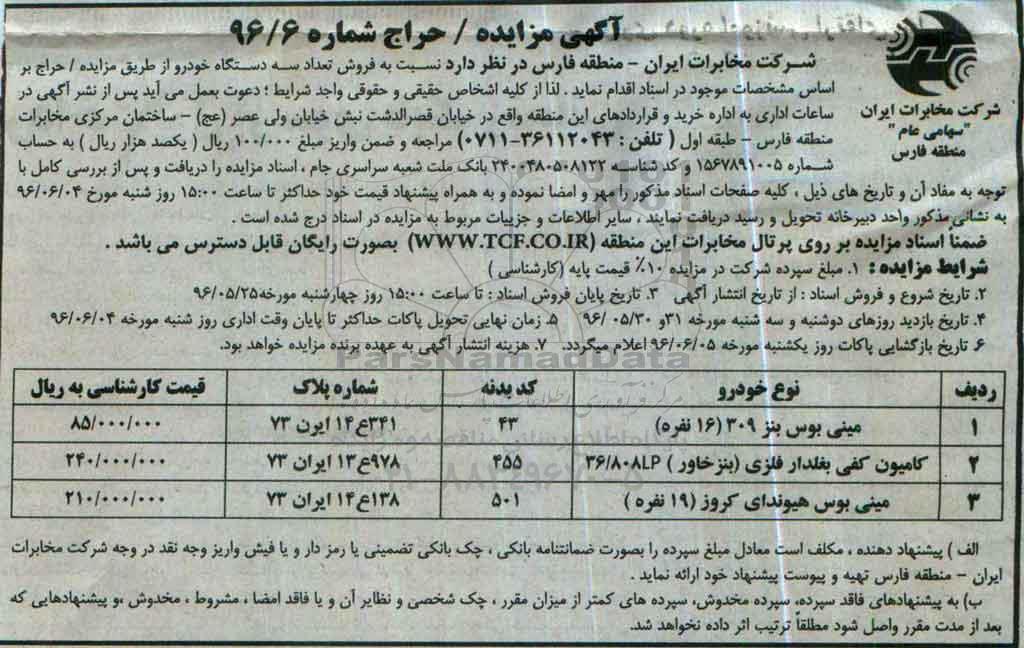 آگهی مزایده / حراج شماره ۹۶/۶
شرکت مخابرات ایران
"سهامی عام"
منطقه فارس
شرکت مخابرات ایران – منطقه فارس در نظر دارد نسبت به فروش تعداد سه دستگاه خودرو از طریق مزایده / حراج بر
اساس مشخصات موجود در اسناد اقدام نماید . لذا از کلیه اشخاص حقیقی و حقوقی واجد شرایط ؛ دعوت بعمل می آید پس از نشر آگهی در
ساعات اداری به اداره خرید و قراردادهای این منطقه واقع در خیابان قصرالدشت نبش خیابان ولی عصر (عج) – ساختمان مرکزی مخابرات
منطقه فارس – طبقه اول ( تلفن : ۳۶۱۱۲۰۴۳-۰۷۱۱) مراجعه و ضمن واریز مبلغ ۱۰۰/۰۰۰ ریال ( یکصد هزار ریال ) به حساب
شماره ۱۵۶۷۸۹۱۰۰۵ و کد شناسه ۲۴۰۰۴۸۰۵۰۸۱۲۲ بانک ملت شعبه سراسری جام ، اسناد مزایده را دریافت و پس از بررسی کامل با
توجه به مفاد آن و تاریخ های ذیل ، کلیه صفحات اسناد مذکور را مهر و امضا نموده و به همراه پیشنهاد قیمت خود حداکثر تا ساعت ۱۵:۰۰ روز شنبه مورخ ۹۶/۰۶/۰۴
به نشانی مذکور واحد دبیرخانه تحویل و رسید دریافت نمایند ، سایر اطلاعات و جزییات مربوط به مزایده در اسناد درج شده است .
ضمناً اسناد مزایده بر روی پرتال مخابرات این منطقه (WWW.TCF.CO.IR) بصورت رایگان قابل دسترس می باشد .
شرایط مزایده : ۱. مبلغ سپرده شرکت در مزایده ۱۰٪ قیمت پایه (کارشناسی )
۲. تاریخ شروع و فروش اسناد : از تاریخ انتشار آگهی ۳. تاریخ پایان فروش اسناد : تا ساعت ۱۵:۰۰ روز چهارشنبه مورخه۹۶/۰۵/۲۵
۴. تاریخ بازدید روزهای دوشنبه و سه شنبه مورخه ۳۱و ۰۵/۳۰/ ۹۶ ۵. زمان نهایی تحویل پاکات حداکثر تا پایان وقت اداری روز شنبه مورخه ۹۶/۰۶/۰۴
۶. تاریخ بازگشایی پاکات روز یکشنبه مورخه ۹۶/۰۶/۰۵ اعلام میگردد. ۷. هزینه انتشار آگهی به عهده برنده مزایده خواهد بود.
ParsNamadData
ردیف نوع خودرو کد بدنه شماره پلاک قیمت کارشناسی به ریال
۱ مینی بوس بنز ۳۰۹ (۱۶ نفره) ۴۳ ۳۴۱ع۱۴ ایرن ۷۳ ۸۵/۰۰۰/۰۰۰
۲ کامیون کفی بغلدار فلزی (بنز خاور ) ۳۶/۸۰۸LP ۴۵۵ ۹۷۸ع۱۳ ایران ۷۳ ۲۴۰/۰۰۰/۰۰۰
۳ مینی بوس هیوندای کروز (۱۹ نفره ) ۵۰۱ ۱۳۸ع۱۴ ایران ۷۳ ۲۱۰/۰۰۰/۰۰۰
الف ) پیشنهاد دهنده ، مکلف است معادل مبلغ سپرده را بصورت ضمانتنامه بانکی ، چک بانکی تضمینی یا رمز دار و یا فیش واریز وجه نقد در وجه شرکت مخابرات
ایران – منطقه فارس تهیه و پیوست پیشنهاد خود ارائه نماید .
ب) به پیشنهادهای فاقد سپرده، سپرده مخدوش، سپرده های کمتر از میزان مقرر ، چک شخصی و نظایر آن و یا فاقد امضا ، مشروط ، مخدوش ،و پیشنهادهایی که
بعد از مدت مقرر واصل شود مطلقاً ترتیب اثر داده نخواهد شد.